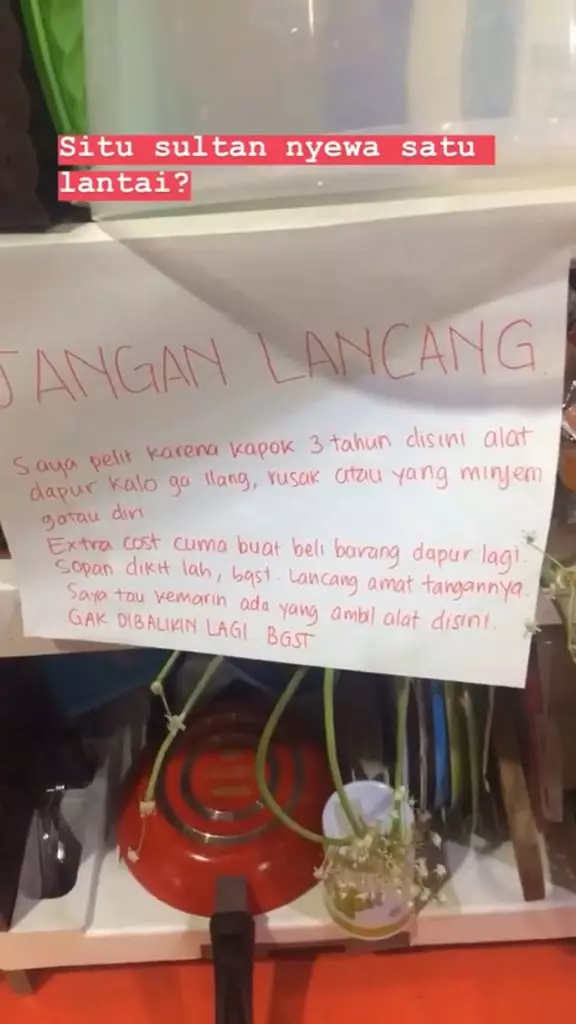 Situ sultan nyewa satu
lantai?
JANGAN LANCANG
Saya pelit karena kapok 3 tahun disini alat
dapur kalo ga ilang, rusak atau yang minjem
gatau diri.
Extra cost cuma buat beli barang dapur lagi.
Sopan dikit lah, bgst. Lancang amat tangannya.
Saya tau kemarin ada yang ambil alat disini.
GAK DIBALIKIN LAGI BGST